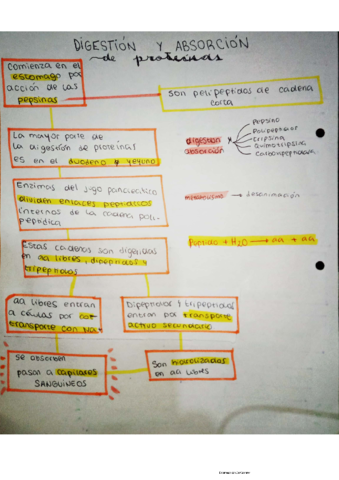 DIGESTIÓN Y ABSORCIÓN
de proteínas
Comienza en el
estomago por
acción de las
pepsinas
Son polipeptidos de cadena
corta
La mayor parte de
la digestión de proteínas
es en el duodeno y yeyuno
digestión
absorción
Enzimas del jugo pancreatico
dividen enlaces peptidicos
internos de la cadena poli-
peptidica
Metabolismo → desaminación
Estas cadenas son digeridas
en aa libres, dipeptidos y
tripeptidos
Peptido + H2O → aa + aa
aa libres entran
a células por cot
transporte con Na+
Dipeptidos y tripeptidos
entran por transporte
activo secundario
se absorben
pasan a capilares
SANGUÍNEOS
Son hidrolizados
en aa libres